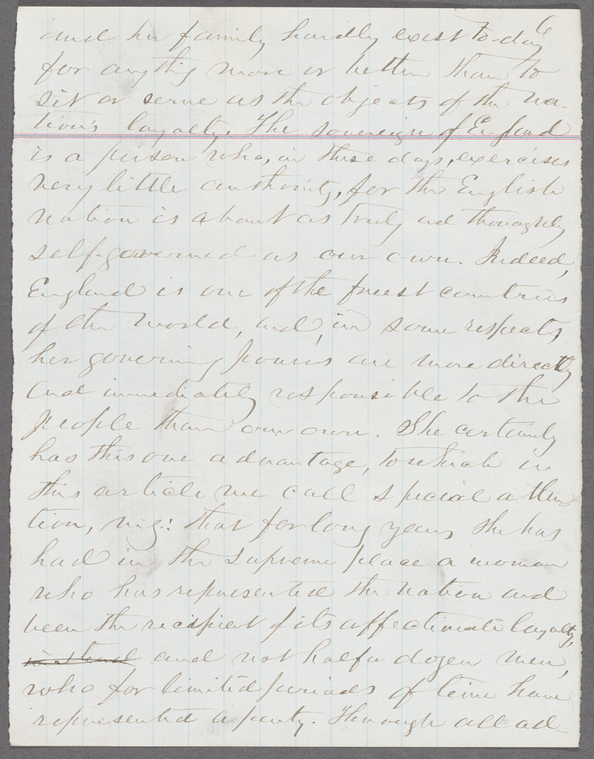 6
and her family hardly exist to-day
for any th'g more or better than to
sit or serve as the objects of the na-
tion's loyalty. The sovereign of England
is a person who, in these days, exercises
very little authority, for the English
nation is about as truly and thoroughly
self-governed as our own. Indeed,
England is one of the freest countries
of the world, and, in some respects,
her governing powers are more directly
and immediately responsible to the
people than our own. She certainly
has this one advantage, to which in
this article we call special atten-
tion, viz: that for long years she has
had in the supreme place a woman
who has represented the nation and
been the recipient of its affectionate loyalty,
instead and not half a dozen men,
who for limited periods of time have
represented a party. Through all ad-